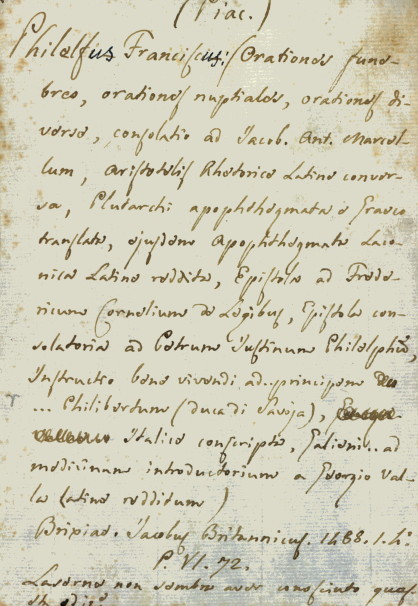 (Piac.)
Philelfus Franciscus: (Orationes fune-
bres, orationes nuptiales, orationes di-
versæ, consolatio ad Jacob. Ant. Marcel-
lum, Aristotelis Rhetorica Latine conver-
sa, Plutarchi apophthegmata e Græco
translata, ejusdem Apophthegmata Laco-
nica Latine reddita, Epistola ad Frede-
ricum Cornelium de Legibus, Epistola con-
solatoria ad Petrum Justinum Philelphū,
Instructio bene vivendi ad principem
... Philibertum (duca di Savoja),
Italice conscripta, Galieni.. ad
medicinam introductorium a Georgio Val-
la Latine redditum)
Brixiae. Jacobus Britannicus. 1488. I. h.
P. VI. 72.
Laserna non sembra aver conosciuto